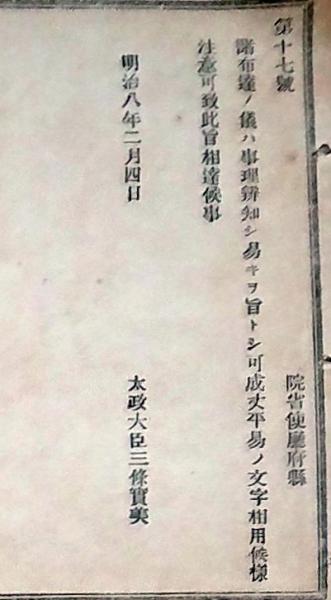 第十七號
院省使廳府縣
諸布達ノ儀ハ事理辨知シ易キヲ旨トシ可成丈平易ノ文字相用候樣
注意可致此旨相達候事
明治八年二月四日
太政大臣三條實美